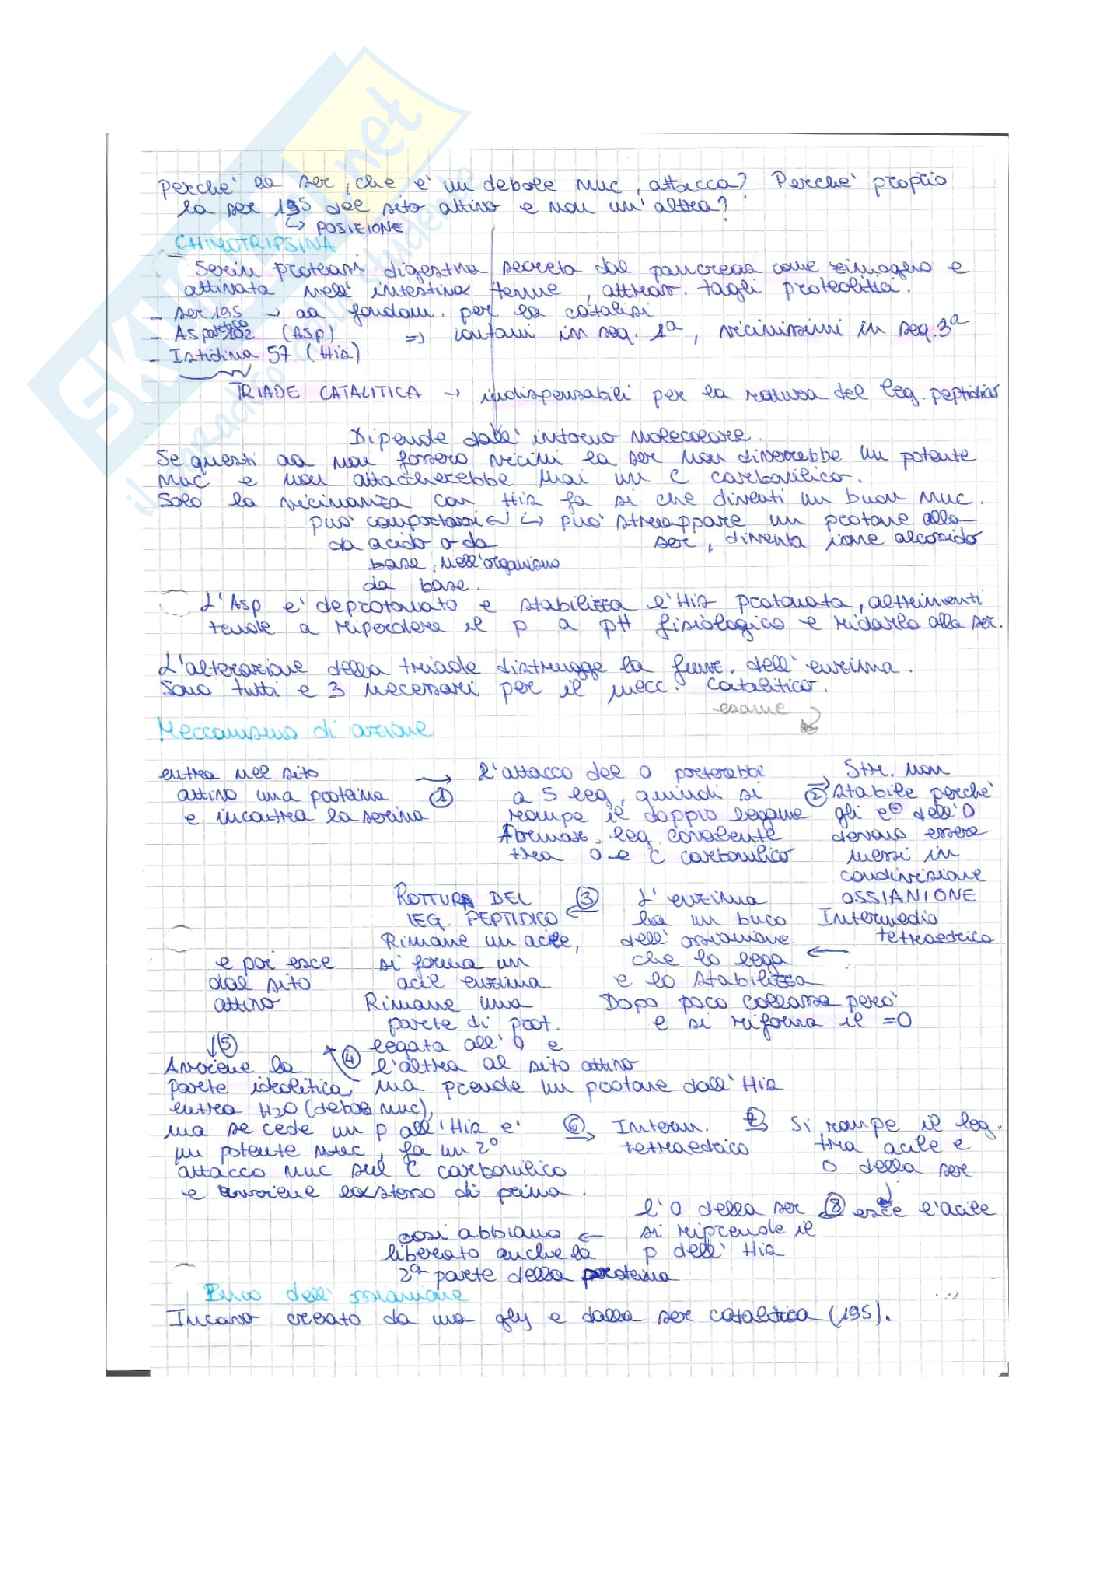 Perchè la ser, che è un debole nuc, attacca? Perchè proprio
la ser 195 del sito attivo e non un'altra?
↳ POSIZIONE
CHIMOTRIPSINA
Serin proteasi digestiva secreta dal pancreas come zimogeno e
attivata nell'intestino tenue, attrav. tagli proteolitici.
- Ser 195 → aa fondam. per la catalisi
- Aspartato 102 (Asp) => lontani in seq. 1ª, vicinissimi in seq. 3ª
- Istidina 57 (His)
TRIADE CATALITICA → indispensabili per la rottura del leg. peptidico
Dipende dall'intorno molecolare.
Se questi aa non fossero vicini la ser non diverrebbe un potente
nuc e non attaccherebbe mai un C carbonilico.
Solo la vicinanza con His fa sì che diventi un buon nuc.
può comportarsi ↵ ↳ può strappare un protone alla
da acido o da ser, diventa ione alcossido
base, nell'organismo
da base.
L'Asp è deprotonato e stabilizza l'His protonata, altrimenti
tende a riperdere il p a pH fisiologico e ridarlo alla ser.
L'alterazione della triade distrugge la funz. dell'enzima.
Sono tutti e 3 necessari per il mecc. catalitico.
esame
Meccanismo di azione
entra nel sito
attivo una proteina
e incontra la serina
→ ①
L'attacco del O porterebbe
a 5 leg, quindi si
rompe il doppio legame
formaz. leg. covalente
tra O e C carbonilico
→ ②
Str. non
stabile perchè
gli e⊖ dell'O
devono essere
messi in
condivisione
OSSIANIONE
Intermedio
tetraedrico
←
L'enzima
ha un buco
dell'ossianione
che lo lega
e lo stabilizza
Dopo poco collassa però
e si riforma il =O
③ ←
ROTTURA DEL
LEG. PEPTIDICO
Rimane un acile,
si forma un
acil enzima
Rimane una
parte di prot.
legata all'O e
l'altra al sito attivo
ma prende un protone dall'His
④
e poi esce
dal sito
attivo
↓ ⑤
Avviene la
parte idrolitica,
entra H2O (debole nuc),
ma se cede un p all'His è
un potente nuc, fa un 2°
attacco nuc sul C carbonilico
e avviene lo stesso di prima.
⑥ →
Interm.
tetraedrico
⑦ →
Si rompe il leg.
tra acile e
O della ser
↓
esce l'acile
⑧ ←
L'O della ser
si riprende il
p dell'His
←
così abbiamo
liberato anche la
2ª parte della proteina
Buco dell'ossianione
Incavo creato da una gly e dalla ser catalitica (195).
SKUOLA.net